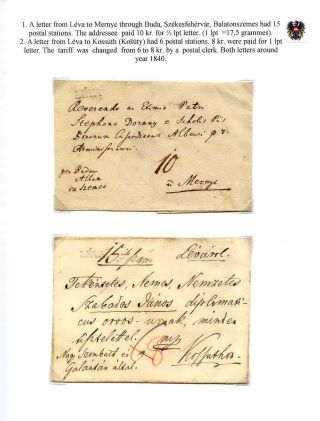 1. A letter from Léva to Mernye through Buda, Székesfehérvár, Balatonszemes had 15
postal stations. The addressee paid 10 kr. for ½ lpt letter. (1 lpt =17,5 grammes).
2. A letter from Léva to Kossúth (Košúty) had 6 postal stations. 8 kr. were paid for 1 lpt
letter. The tariff was changed from 6 to 8 kr. by a postal clerk. Both letters around
year 1840.
Reverendo ac Eximio Patri
Stephano Dornay e Scholis Piis
10
per Budam
Albam
Szemes
a Mernye
Léváról.
Tekéntetes, Nemes, Nemzetes
Szabados János diplymati-
cus orvos-urnak, minden
tisztelettel.
Nagy Szombat és
Galántán által.
Kossuthon.